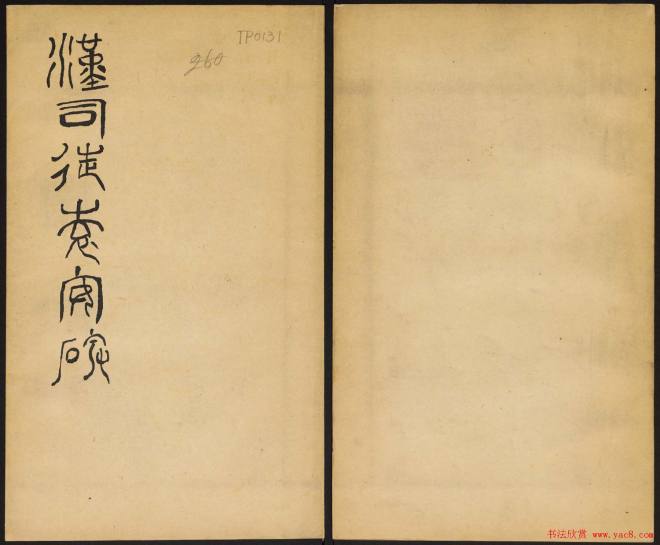 漢司徒袁安碑
TP0131
260
书法欣赏 www.yac8.com